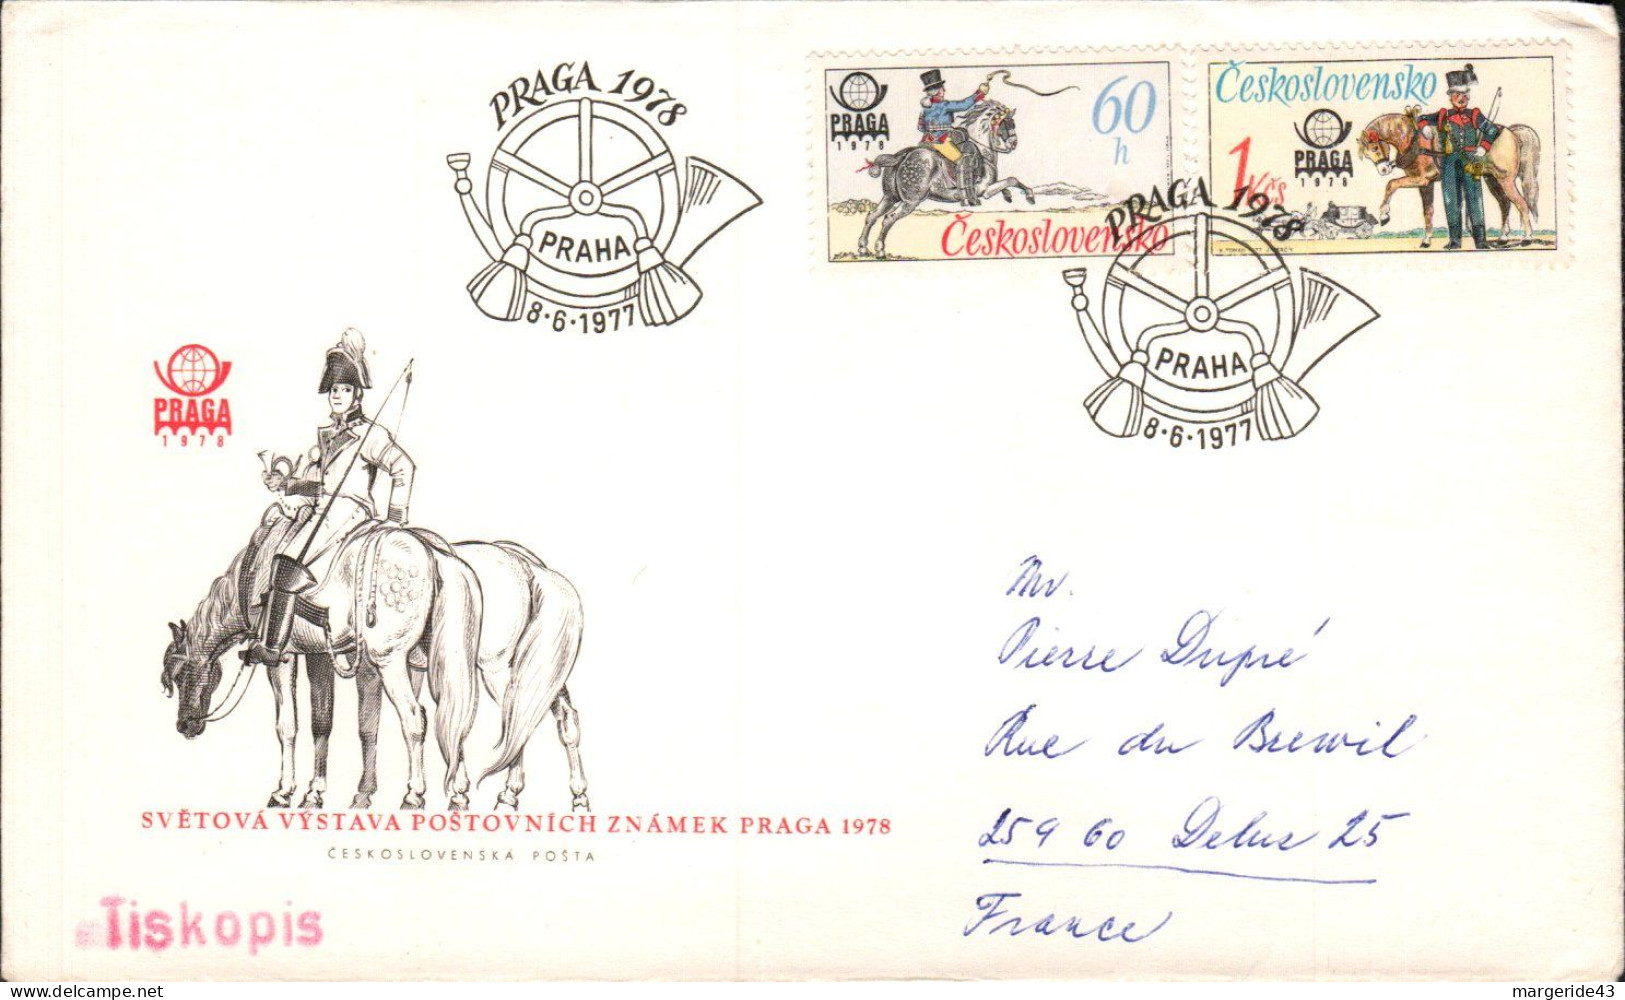 PRAGA 1978
PRAHA
8·6·1977
PRAGA
1978
60
h
Československo
Československo
PRAGA
1978
1 Kčs
PRAGA 1978
PRAHA
8·6·1977
PRAGA
1978
Mr.
Pierre Dupré
Rue du Brewil
259 60 Delus 25
France
SVĚTOVÁ VÝSTAVA POŠTOVNÍCH ZNÁMEK PRAGA 1978
ČESKOSLOVENSKÁ POŠTA
Tiskopis
Delcampe.net
margeride43